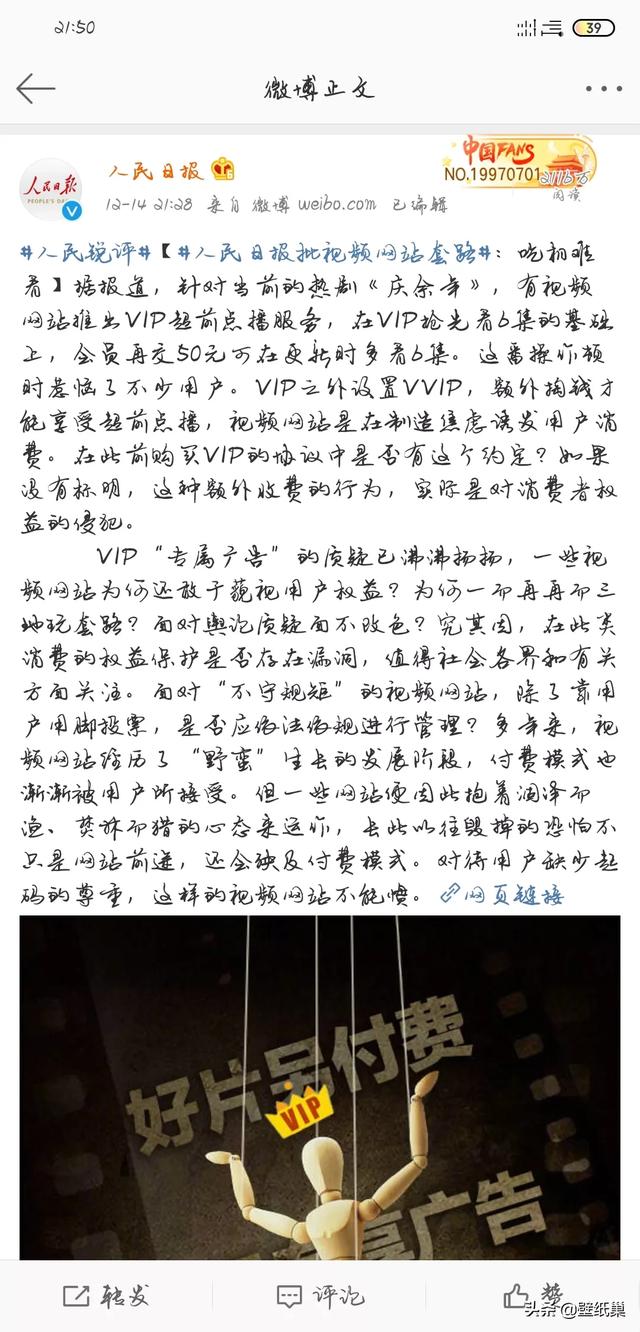 21:50
39
微博正文
人民日报
PEOPLE'S DA
人民日报
12-14 21:28 来自 微博 weibo.com 已编辑
中国FANS
NO.19970701
2113万
阅读
#人民锐评#【#人民日报批视频网站套路#：吃相难
看】据报道，针对当前的热剧《庆余年》，有视频
网站推出VIP超前点播服务，在VIP抢先看6集的基础
上，会员再交50元可在更新时多看6集。这番操作顿
时惹恼了不少用户。VIP之外设置VVIP，额外掏钱才
能享受超前点播，视频网站是在制造焦虑诱发用户消
费。在此前购买VIP的协议中是否有这个约定？如果
没有标明，这种额外收费的行为，实际是对消费者权
益的侵犯。
VIP“专属广告”的质疑已沸沸扬扬，一些视
频网站为何还敢于藐视用户权益？为何一而再再而三
地玩套路？面对舆论质疑面不改色？究其因，在此类
消费的权益保护是否存在漏洞，值得社会各界和有关
方面关注。面对“不守规矩”的视频网站，除了靠用
户用脚投票，是否应依法依规进行管理？多年来，视
频网站经历了“野蛮”生长的发展阶段，付费模式也
渐渐被用户所接受。但一些网站便因此抱着涸泽而
渔、焚林而猎的心态来运作，长此以往毁掉的恐怕不
只是网站前途，还会殃及付费模式。对待用户缺少起
码的尊重，这样的视频网站不能惯。网页链接
好片另付费
VIP
享广告
转发
评论
赞
头条@壁纸巢